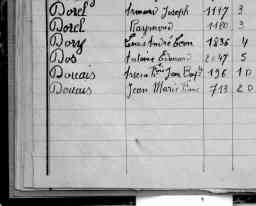 Dorel Armand Joseph 1117 3
Dorel Raymond 1180 3
Dory Louis André Léon 1836 4
Dos Antoine Edmond 2047 5
Douais Jean Bapt 196 10
Douais Jean Marie 713 20